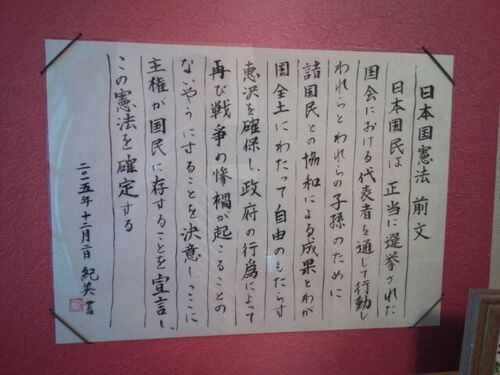 日本国憲法 前文
日本国民は 正当に選挙された
国会における代表者を通じて行動し
われらとわれらの子孫のために
諸国民との協和による成果とわが
国全土にわたって自由のもたらす
恵沢を確保し、政府の行為によって
再び戦争の惨禍が起こることの
ないやうにすることを決意しここに
主権が国民に存することを宣言し、
この憲法を確定する
二〇一五年十二月二日 紀英 書